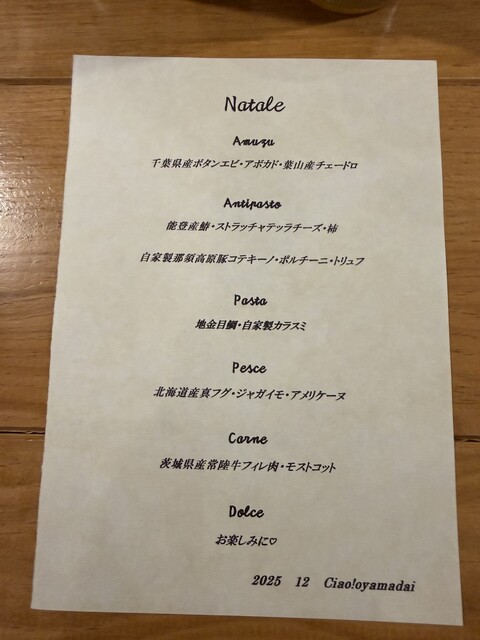 Natale
Amuzu
千葉県産ボタンエビ・アボカド・葉山産チェードロ
Antipasto
能登産鰆・ストラッチャテッラチーズ・柿
自家製那須高原豚コテキーノ・ポルチーニ・トリュフ
Pasta
地金目鯛・自家製カラスミ
Pesce
北海道産真フグ・ジャガイモ・アメリケーヌ
Carne
茨城県産常陸牛フィレ肉・モストコット
Dolce
お楽しみに♡
2025 12 Ciao!oyamadai